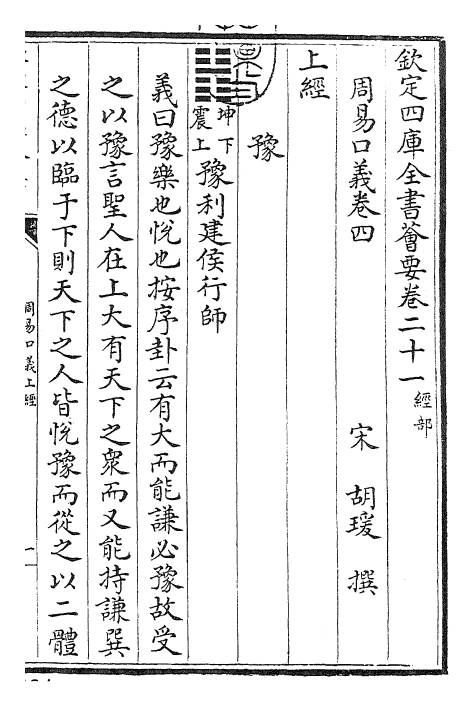 欽定四庫全書薈要卷二十一 經部
周易口義卷四 宋 胡瑗 撰
上經
豫
坤下
震上 豫利建侯行師
義曰豫樂也悅也按序卦云有大而能謙必豫故受
之以豫言聖人在上大有天下之衆而又能持謙巽
之德以臨于下則天下之人皆悅豫而從之以二體
周易口義上經
一